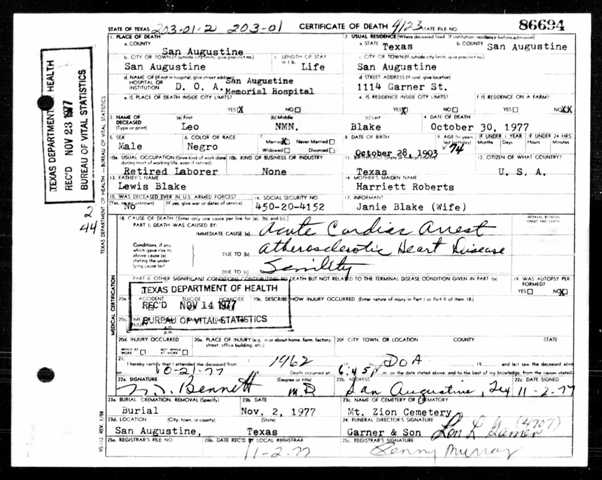 STATE OF TEXAS 203-01-2 203-01 CERTIFICATE OF DEATH 4/23 STATE FILE NO. 86694
1. PLACE OF DEATH 2. USUAL RESIDENCE (Where deceased lived. If institution: residence before admission)
a. COUNTY San Augustine a. STATE Texas b. COUNTY San Augustine
b. CITY OR TOWN c. LENGTH OF STAY c. CITY OR TOWN
San Augustine Life San Augustine
d. NAME OF (If not in hospital, give street address) HOSPITAL OR INSTITUTION D. O. A. San Augustine Memorial Hospital d. STREET ADDRESS (If rural, give location) 1114 Garner St.
e. IS PLACE OF DEATH INSIDE CITY LIMITS? e. IS RESIDENCE INSIDE CITY LIMITS? f. IS RESIDENCE ON A FARM?
YES X NO YES X NO YES NO XX
3. NAME OF DECEASED (Type or print) (a) First (b) Middle (c) Last 4. DATE OF DEATH
Leo NMN. Blake October 30, 1977
5. SEX 6. COLOR OR RACE 7. Married Never Married Widowed Divorced 8. DATE OF BIRTH 9. AGE IF UNDER 1 YEAR IF UNDER 24 HRS
Male Negro October 28, 1903 74 Months Days Hours Min.
10a. USUAL OCCUPATION 10b. KIND OF BUSINESS OR INDUSTRY 12. CITIZEN OF WHAT COUNTRY?
Retired Laborer None Texas U. S. A.
13. FATHER'S NAME 14. MOTHER'S MAIDEN NAME
Lewis Blake Harriett Roberts
15. WAS DECEASED EVER IN U.S. ARMED FORCES? 16. SOCIAL SECURITY NO. 17. INFORMANT
No 450-20-4152 Janie Blake (Wife)
18. CAUSE OF DEATH (Enter only one cause per line for (a), (b), and (c).)
PART I. DEATH WAS CAUSED BY:
IMMEDIATE CAUSE (a) Acute Cardiac Arrest
Conditions, if any, which gave rise to above cause (a) stating the underlying cause last
DUE TO (b) Atherosclerotic Heart Disease
DUE TO (c) Senility
PART II. OTHER SIGNIFICANT CONDITIONS CONTRIBUTING TO DEATH BUT NOT RELATED TO THE TERMINAL DISEASE CONDITION GIVEN IN PART I(a) 19. WAS AUTOPSY PERFORMED? YES NO X
20a. ACCIDENT SUICIDE HOMICIDE 20b. DESCRIBE HOW INJURY OCCURRED (Enter nature of injury in Part I or Part II of item 18.)
TEXAS DEPARTMENT OF HEALTH
REC'D NOV 14 1977
BUREAU OF VITAL STATISTICS
20d. INJURY OCCURRED 20e. PLACE OF INJURY 20f. CITY, TOWN, OR LOCATION COUNTY STATE
21. I hereby certify that I attended the deceased from 1962 DOA
10-21-77
22a. SIGNATURE (Degree or title) 22b. ADDRESS 22c. DATE SIGNED
Bennett MD San Augustine, Tex 11-2-77
23a. BURIAL, CREMATION, REMOVAL (Specify) 23b. DATE 23c. NAME OF CEMETERY OR CREMATORY
Burial Nov, 2, 1977 Mt. Zion Cemetery
23d. LOCATION (City, town, or county) (State) 24. FUNERAL DIRECTOR'S SIGNATURE
San Augustine, Texas Garner & Son
25a. REGISTRAR'S FILE NO. 25b. DATE REC'D BY LOCAL REGISTRAR 25c. REGISTRAR'S SIGNATURE
11-2-77 Murray
TEXAS DEPARTMENT OF HEALTH
REC'D NOV 23 1977
BUREAU OF VITAL STATISTICS
2
44
TEXAS DEPARTMENT OF HEALTH — BUREAU OF VITAL STATISTICS
MEDICAL CERTIFICATION